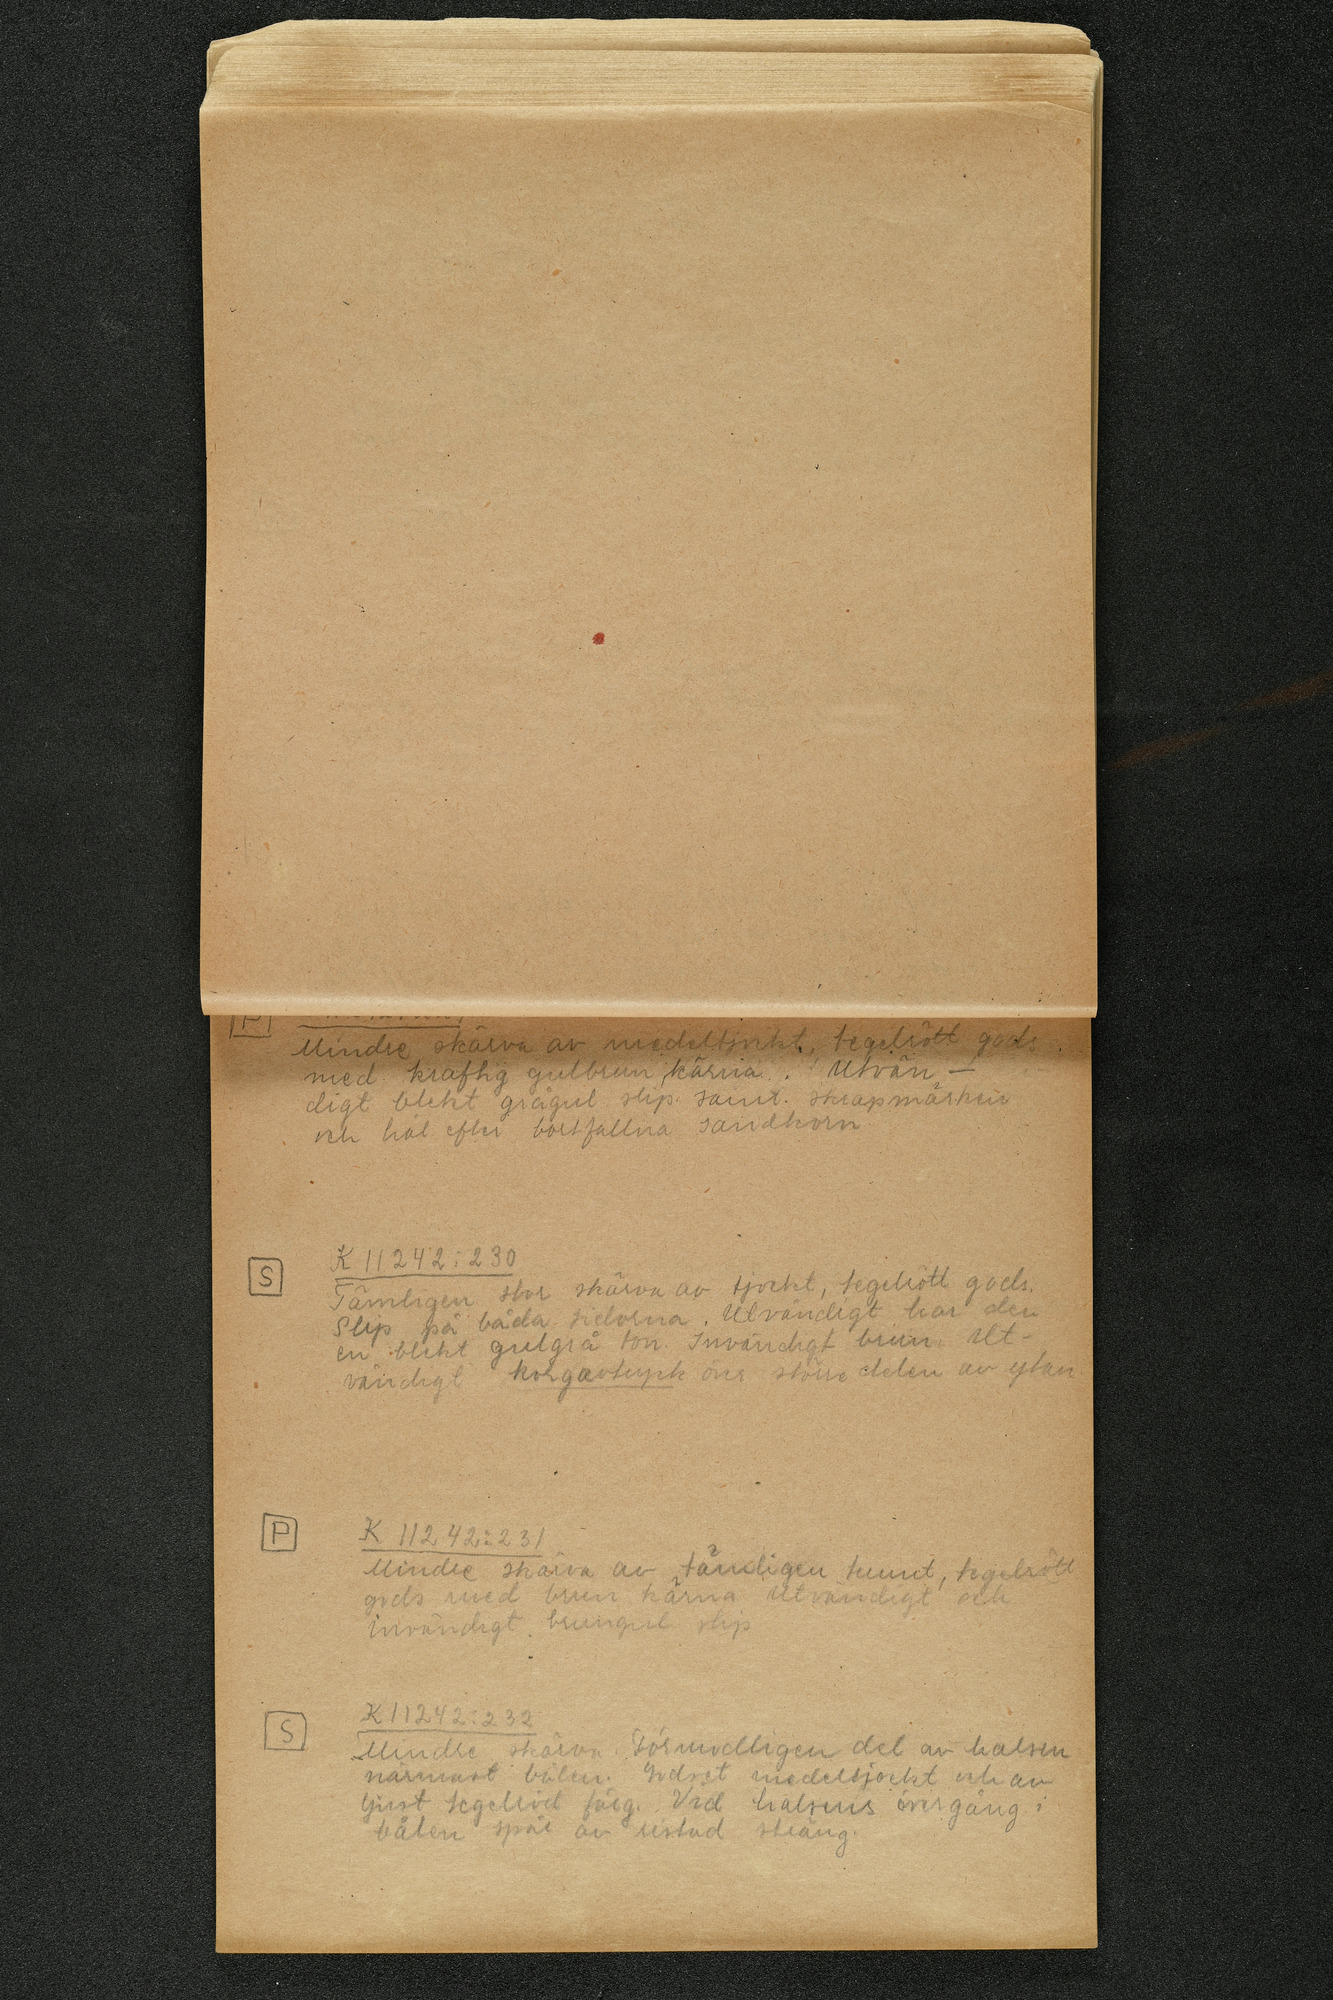 P
Mindre skärva av medeltjockt, tegelrött gods
med kraftig gulbrun kärna. Utvän-
digt blekt grågul slip samt skrapmärken
och hål efter bortfallna sandkorn
S K 11242:230
Tämligen stor skärva av tjockt, tegelrött gods.
Slip på båda sidorna. Utvändigt har den
en blekt gulgrå ton. Invändigt brun. Ut-
vändigt korgavtryck över större delen av ytan
P K 11242:231
Mindre skärva av tämligen tunnt, tegelrött
gods med brun kärna Utvändigt och
invändigt brungul slip
S K 11242:232
Mindre skärva. Förmodligen del av halsen
närmast bålen. Godset medeltjockt och av
ljust tegelröd färg. Vid halsens övergång i
bålen spår av ristad sträng.